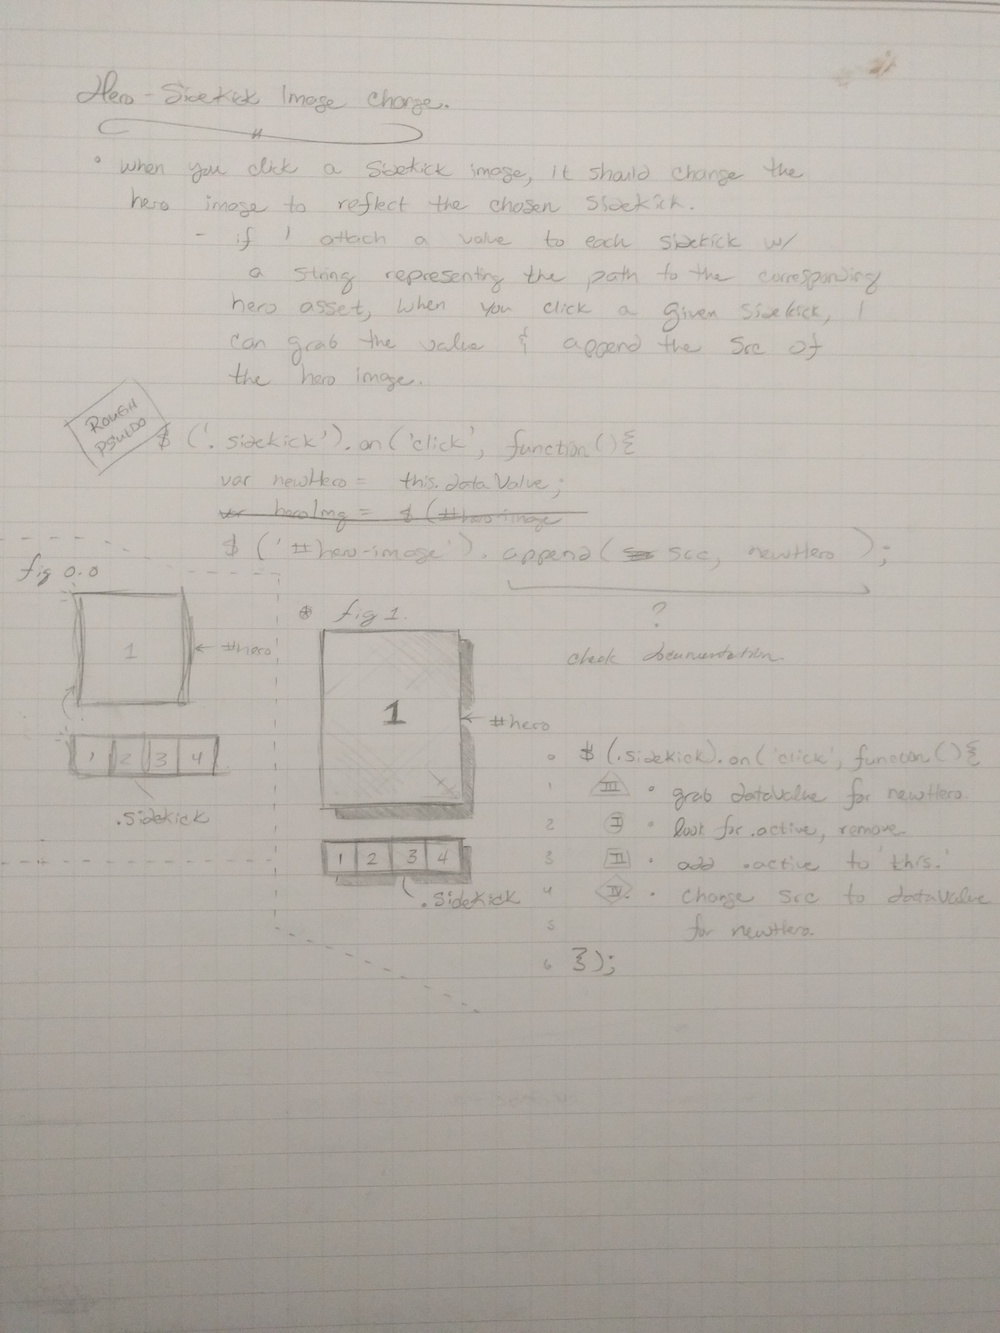 Hero - Sidekick Image Change.
• when you click a sidekick image, it should change the
hero image to reflect the chosen sidekick.
- if I attach a value to each sidekick w/
a string representing the path to the corresponding
hero asset, when you click a given sidekick, I
can grab the value & append the src of
the hero image.
ROUGH
PSUEDO
$ ('.sidekick').on('click', function(){
var newHero = this.dataValue;
var heroImg = $ (#hero-image
$ ('#hero-image').append( src, newHero );
fig 0.0
1
← #hero
1 2 3 4
.sidekick
fig 1.
1
← #hero
1 2 3 4
.sidekick
?
check documentation
0 $ (.sidekick).on('click', function(){
1 III • grab dataValue for newHero
2 I • look for .active, remove
3 II • add .active to 'this.'
4 IV • change src to dataValue
5 for newHero.
6 });